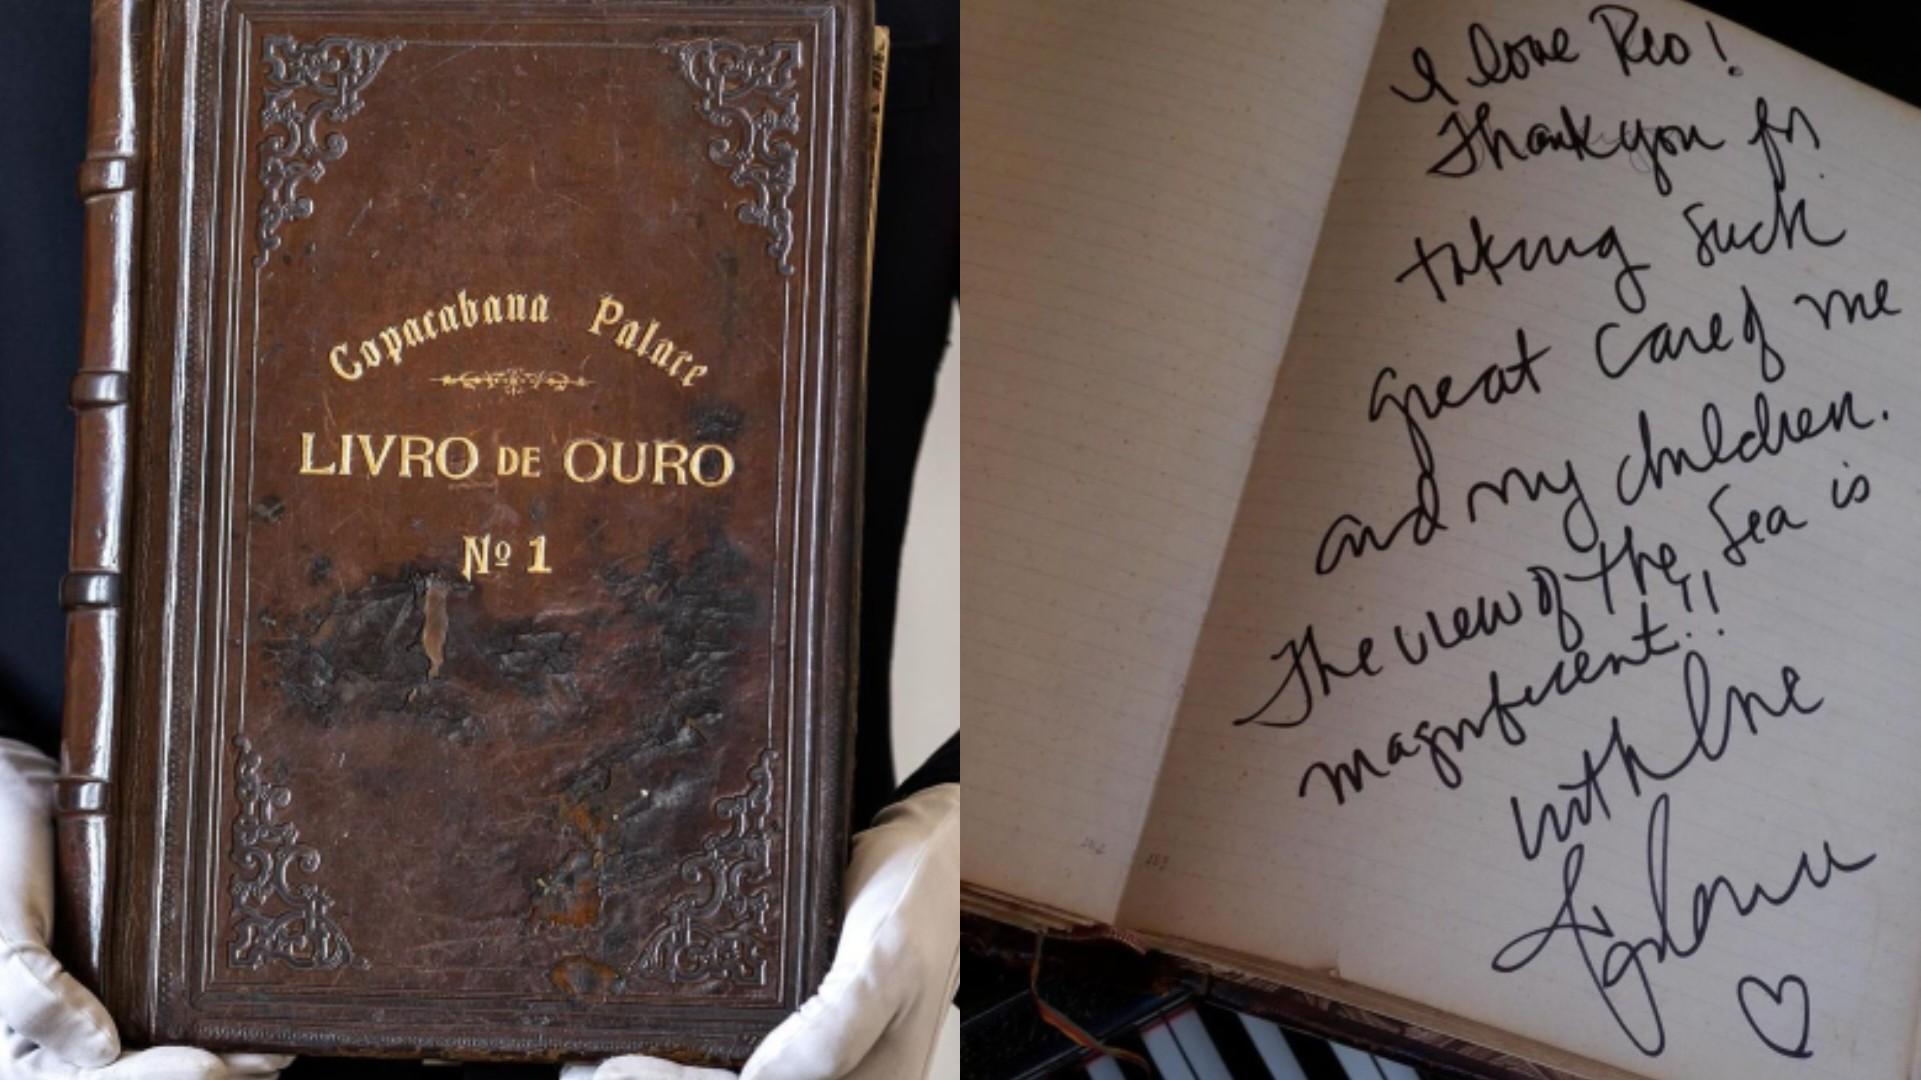 Copacabana Palace
LIVRO DE OURO
Nº 1
I love Rio!
Thank you for
taking such
great care of me
and my children.
The view of the sea is
magnificent!!
with love